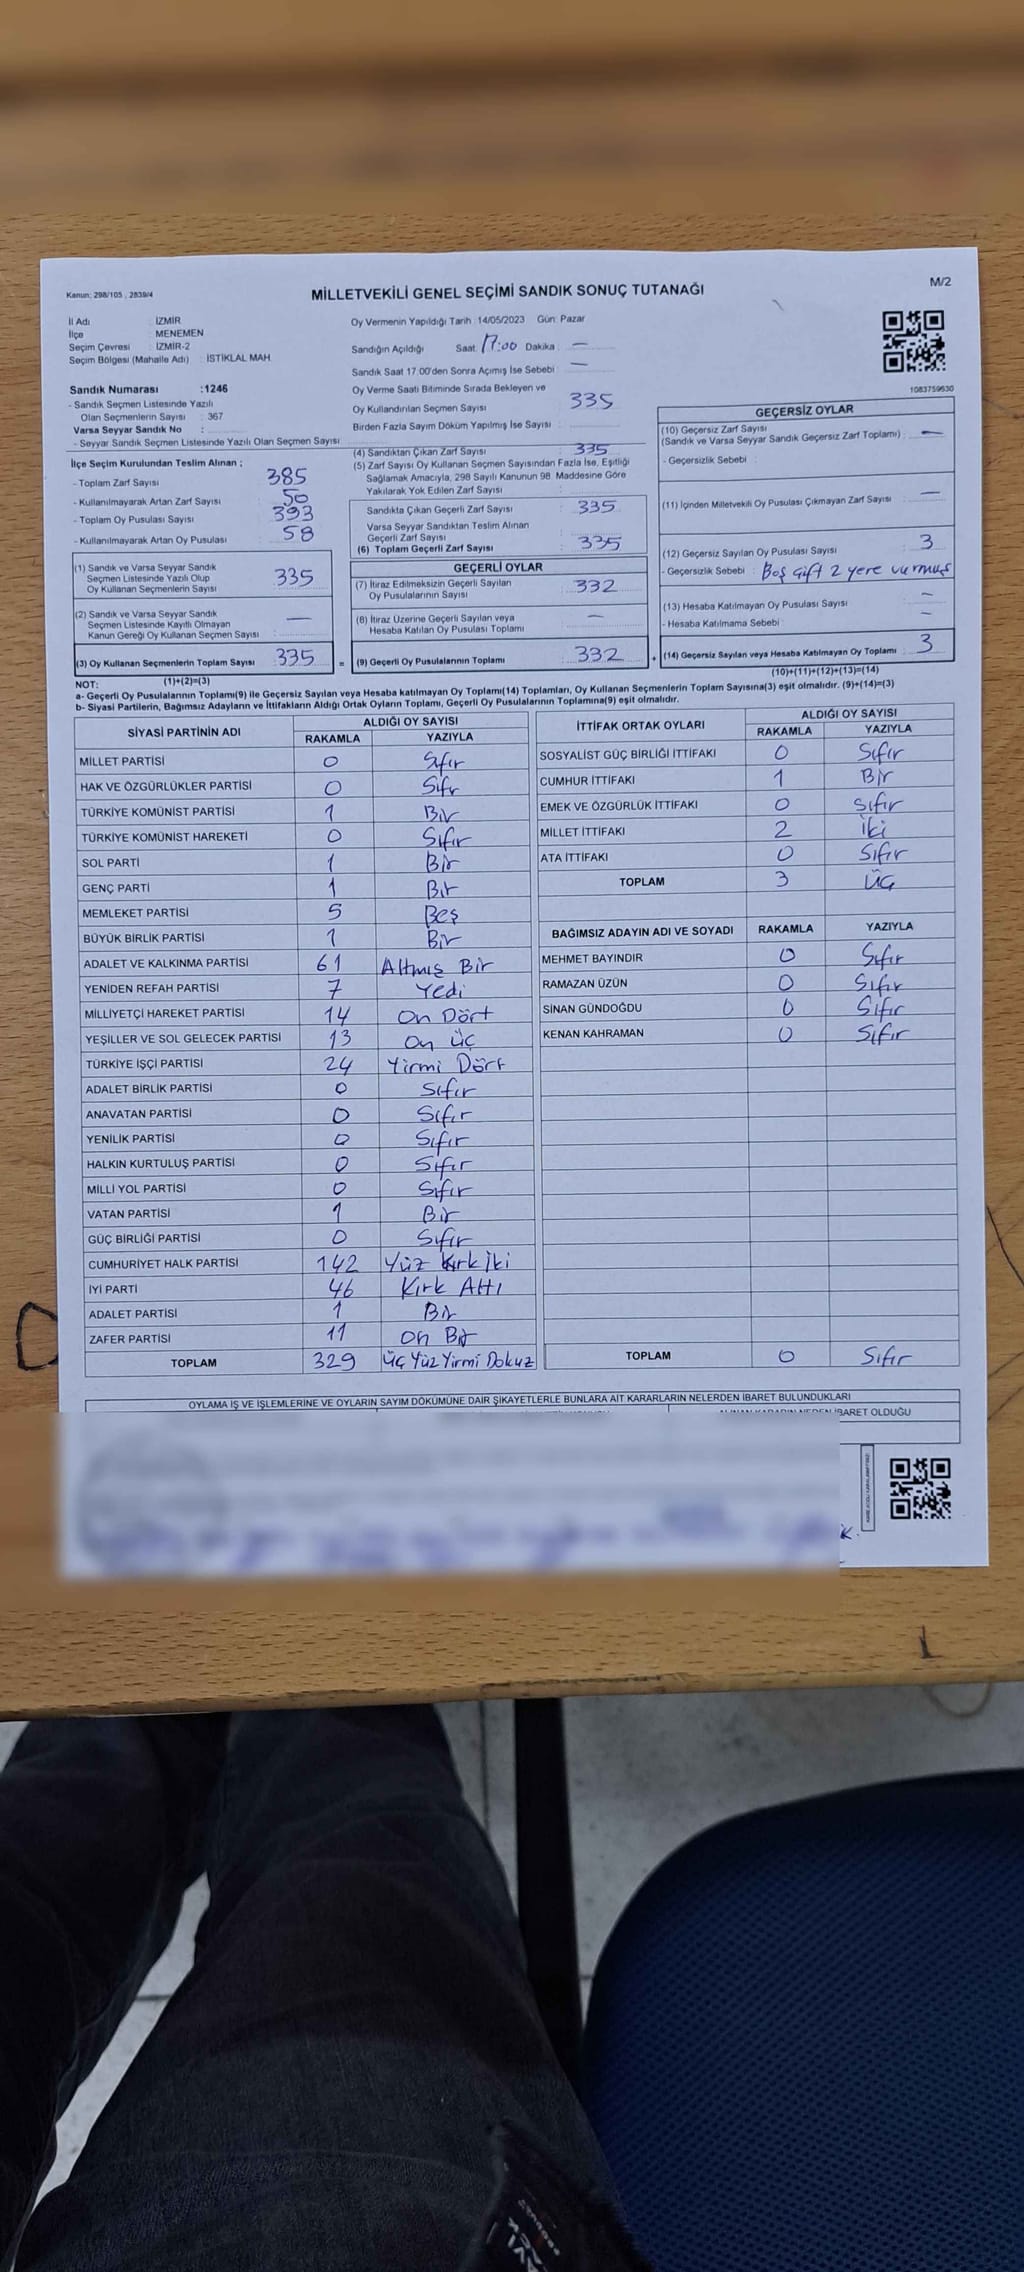 Kanun: 298/105 , 2839/4
MİLLETVEKİLİ GENEL SEÇİMİ SANDIK SONUÇ TUTANAĞI
M/2
İl Adı : İZMİR
İlçe MENEMEN
Seçim Çevresi : İZMİR-2
Seçim Bölgesi (Mahalle Adı) : İSTİKLAL MAH
Sandık Numarası :1246
- Sandık Seçmen Listesinde Yazılı
Olan Seçmenlerin Sayısı : 367
Varsa Seyyar Sandık No :
- Seyyar Sandık Seçmen Listesinde Yazılı Olan Seçmen Sayısı
Oy Vermenin Yapıldığı Tarih :14/05/2023 Gün: Pazar
Sandığın Açıldığı Saat 17:00 Dakika : —
Sandık Saat 17 00'den Sonra Açımış İse Sebebi : —
Oy Verme Saati Bitiminde Sırada Bekleyen ve
Oy Kullandırılan Seçmen Sayısı 335
Birden Fazla Sayım Döküm Yapılmış İse Sayısı :
1083759630
İlçe Seçim Kurulundan Teslim Alınan ;
- Toplam Zarf Sayısı 385
- Kullanılmayarak Artan Zarf Sayısı : 50
- Toplam Oy Pusulası Sayısı 393
- Kullanılmayarak Artan Oy Pusulası : 58
(1) Sandık ve Varsa Seyyar Sandık
Seçmen Listesinde Yazılı Olup
Oy Kullanan Seçmenlerin Sayısı 335
(2) Sandık ve Varsa Seyyar Sandık
Seçmen Listesinde Kayıtlı Olmayan
Kanun Gereği Oy Kullanan Seçmen Sayısı —
(3) Oy Kullanan Seçmenlerin Toplam Sayısı 335
(4) Sandıktan Çıkan Zarf Sayısı : 335
(5) Zarf Sayısı Oy Kullanan Seçmen Sayısından Fazla İse, Eşitliği
Sağlamak Amacıyla, 298 Sayılı Kanunun 98 Maddesine Göre
Yakılarak Yok Edilen Zarf Sayısı
Sandıkta Çıkan Geçerli Zarf Sayısı : 335
Varsa Seyyar Sandıktan Teslim Alınan
Geçerli Zarf Sayısı
(6) Toplam Geçerli Zarf Sayısı : 335
GEÇERLİ OYLAR
(7) İtiraz Edilmeksizin Geçerli Sayılan
Oy Pusulalarının Sayısı : 332
(8) İtiraz Üzerine Geçerli Sayılan veya
Hesaba Katılan Oy Pusulası Toplamı —
= (9) Geçerli Oy Pusulalarının Toplamı : 332
GEÇERSİZ OYLAR
(10) Geçersiz Zarf Sayısı
(Sandık ve Varsa Seyyar Sandık Geçersiz Zarf Toplamı) : —
- Geçersizlik Sebebi :
(11) İçinden Milletvekili Oy Pusulası Çıkmayan Zarf Sayısı : —
(12) Geçersiz Sayılan Oy Pusulası Sayısı : 3
- Geçersizlik Sebebi : Boş Çift 2 yere vurmuş
(13) Hesaba Katılmayan Oy Pusulası Sayısı : —
- Hesaba Katılmama Sebebi : —
+ (14) Geçersiz Sayılan veya Hesaba Katılmayan Oy Toplamı : 3
NOT: (1)+(2)=(3)
(10)+(11)+(12)+(13)=(14)
a- Geçerli Oy Pusulalarının Toplamı(9) ile Geçersiz Sayılan veya Hesaba katılmayan Oy Toplamı(14) Toplamları, Oy Kullanan Seçmenlerin Toplam Sayısına(3) eşit olmalıdır. (9)+(14)=(3)
b- Siyasi Partilerin, Bağımsız Adayların ve İttifakların Aldığı Oyların Toplamı, Geçerli Oy Pusulalarının Toplamına(9) eşit olmalıdır.
SİYASİ PARTİNİN ADI ALDIĞI OY SAYISI
RAKAMLA YAZIYLA
MİLLET PARTİSİ 0 Sıfır
HAK VE ÖZGÜRLÜKLER PARTİSİ 0 Sıfr
TÜRKİYE KOMÜNİST PARTİSİ 1 Bir
TÜRKİYE KOMÜNİST HAREKETİ 0 Sıfır
SOL PARTİ 1 Bir
GENÇ PARTİ 1 Bir
MEMLEKET PARTİSİ 5 Beş
BÜYÜK BİRLİK PARTİSİ 1 Bir
ADALET VE KALKINMA PARTİSİ 61 Altmış Bir
YENİDEN REFAH PARTİSİ 7 Yedi
MİLLİYETÇİ HAREKET PARTİSİ 14 On Dört
YEŞİLLER VE SOL GELECEK PARTİSİ 13 On üç
TÜRKİYE İŞÇİ PARTİSİ 24 Yirmi Dört
ADALET BİRLİK PARTİSİ 0 Sıfır
ANAVATAN PARTİSİ 0 Sıfır
YENİLİK PARTİSİ 0 Sıfır
HALKIN KURTULUŞ PARTİSİ 0 Sıfır
MİLLİ YOL PARTİSİ 0 Sıfır
VATAN PARTİSİ 1 Bir
GÜÇ BİRLİĞİ PARTİSİ 0 Sıfır
CUMHURİYET HALK PARTİSİ 142 Yüz Kırk İki
İYİ PARTİ 46 Kırk Altı
ADALET PARTİSİ 1 Bir
ZAFER PARTİSİ 11 On Bir
TOPLAM 329 Üç Yüz Yirmi Dokuz
İTTİFAK ORTAK OYLARI ALDIĞI OY SAYISI
RAKAMLA YAZIYLA
SOSYALİST GÜÇ BİRLİĞİ İTTİFAKI 0 Sıfır
CUMHUR İTTİFAKI 1 Bir
EMEK VE ÖZGÜRLÜK İTTİFAKI 0 Sıfır
MİLLET İTTİFAKI 2 İki
ATA İTTİFAKI 0 Sıfır
TOPLAM 3 Üç
BAĞIMSIZ ADAYIN ADI VE SOYADI RAKAMLA YAZIYLA
MEHMET BAYINDIR 0 Sıfır
RAMAZAN ÜZÜN 0 Sıfır
SİNAN GÜNDOĞDU 0 Sıfır
KENAN KAHRAMAN 0 Sıfır
TOPLAM 0 Sıfır
OYLAMA İŞ VE İŞLEMLERİNE VE OYLARIN SAYIM DÖKÜMÜNE DAİR ŞİKAYETLERLE BUNLARA AİT KARARLARIN NELERDEN İBARET BULUNDUKLARI
İBARET OLDUĞU